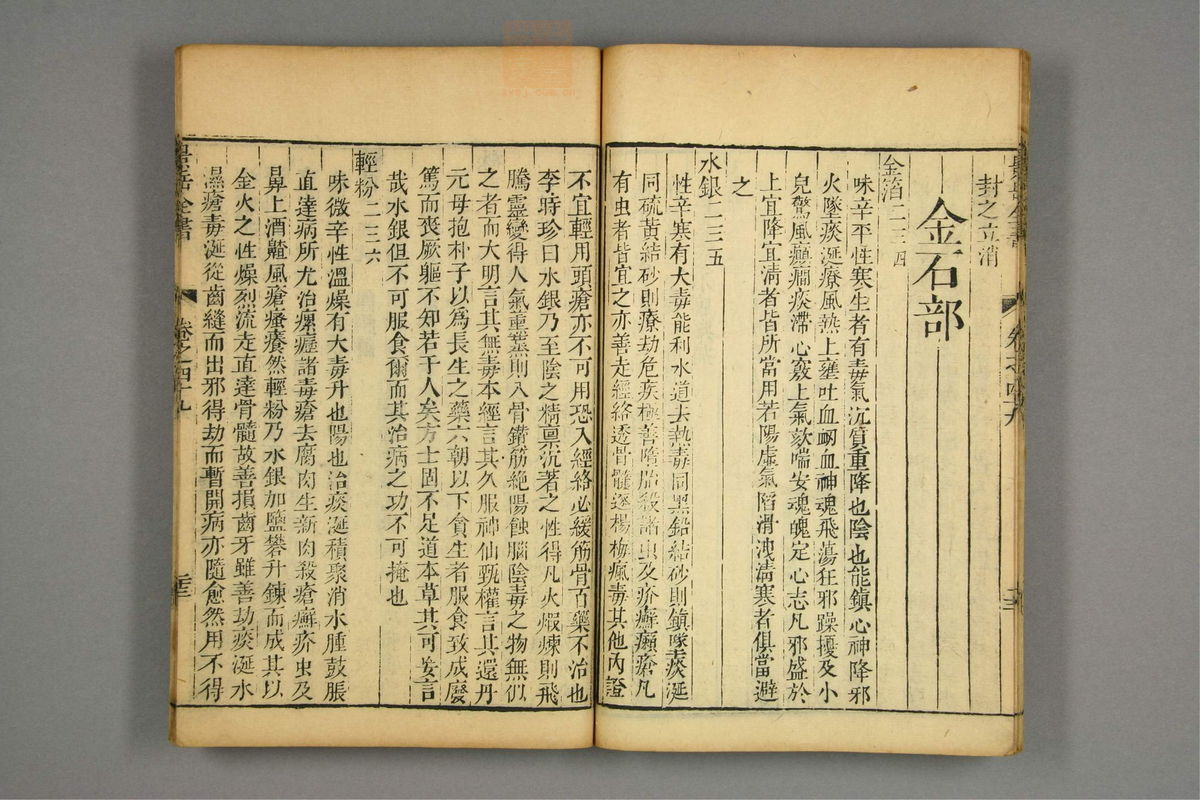 封之立消
金石部
金箔二三四
味辛平性寒生者有毒氣沉質重降也陰也能鎮心神降邪
火墜痰涎療風熱上壅吐血衂血神魂飛蕩狂邪躁擾及小
兒驚風癲癎痰滯心竅上氣欬喘安魂魄定心志凡邪盛於
上宜降宜清者皆所當用若陽虛氣陷滑洩清寒者俱當避
之
水銀二三五
性辛寒有大毒能利水道去熱毒同黑鉛結砂則鎮墜痰涎
同硫黃結砂則療劫危疾極善墮胎殺諸虫及疥癬癩瘡凡
有虫者皆宜之亦善走經絡透骨髓逐楊梅瘋毒其他內證
不宜輕用頭瘡亦不可用恐入經絡必緩筋骨百藥不治也
李時珍曰水銀乃至陰之精稟沉著之性得凡火煆煉則飛
騰靈變得人氣熏蒸則入骨鑽筋絶陽蝕腦陰毒之物無似
之者而大明言其無毒本經言其久服神仙甄權言其還丹
元母抱朴子以爲長生之藥六朝以下貪生者服食致成廢
篤而喪厥軀不知若干人矣方士固不足道本草其可妄言
哉水銀但不可服食爾而其治病之功不可掩也
輕粉二三六
味微辛性溫燥有大毒升也陽也治痰涎積聚消水腫鼓脹
直達病所尤治瘰癧諸毒瘡去腐肉生新肉殺瘡癬疥虫及
鼻上酒齇風瘡瘙癢然輕粉乃水銀加鹽礬升鍊而成其以
金火之性燥烈流走直達骨髓故善損齒牙雖善劫痰涎水
濕瘡毒涎從齒縫而出邪得劫而暫開病亦隨愈然用不得
景岳全書
卷之四十九